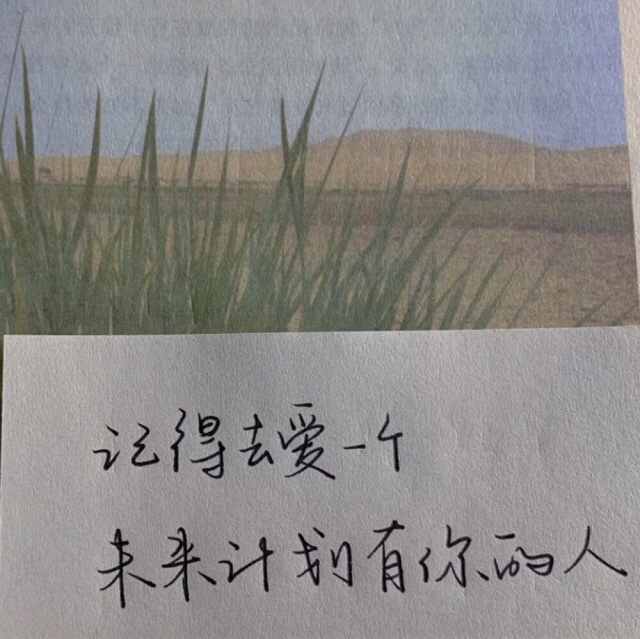 记得去爱一个
未来计划有你的人